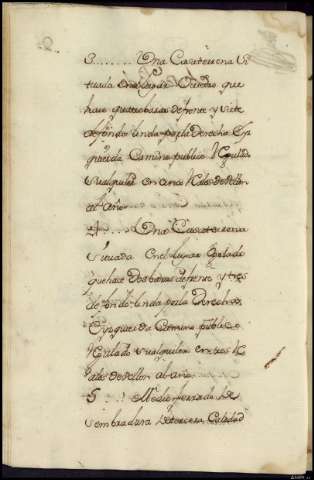 3........ Una Casaterrena Si
tuada En el lugar
hace quatro baras de frente y siete
de fondo linda por la Derecha E
Izquierda Camino publico
su alquiler en once Rs. de Vellon
al año
4....... Una Casaterrena
Situada En el Lugar
que hace Dos baras de frente y tres
de fondo linda por la Derecha
E Izquierda Camino publico
su alquiler en tres R
ales de Vellon al año
5..... Medio ferrado de
Sembradura De tercera Calidad